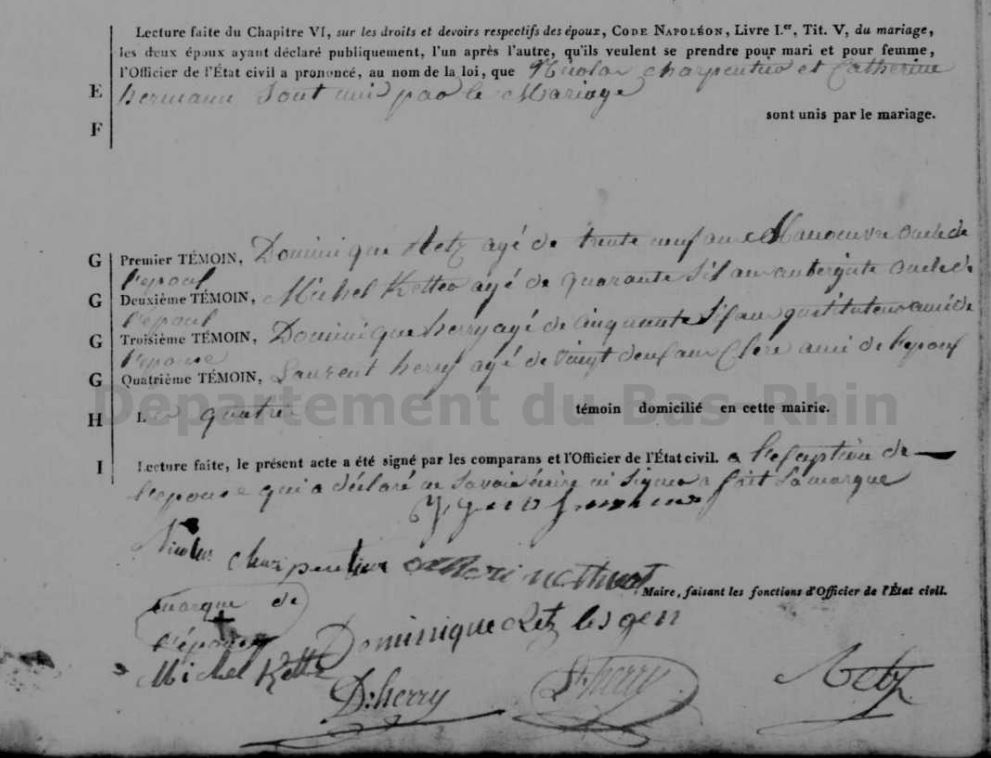 Lecture faite du Chapitre VI, sur les droits et devoirs respectifs des époux, CODE NAPOLÉON, Livre I.er, Tit. V, du mariage,
les deux époux ayant déclaré publiquement, l'un après l'autre, qu'ils veulent se prendre pour mari et pour femme,
l'Officier de l'État civil a prononcé, au nom de la loi, que Nicolas Charpentier et Catherine
E hermann sont unis par le Mariage
F sont unis par le mariage.
G Premier TÉMOIN, Dominique Retz agé de trente neuf ans Manoeuvre oncle de
l'epoux
G Deuxième TÉMOIN, Michel Ketter agé de quarante six ans aubergiste oncle de
l'epoux
G Troisième TÉMOIN, Dominique herry agé de cinquante six ans instituteur ami de
l'epouse
G Quatrième TÉMOIN, Laurent herry agé de vingt deux ans Clerc ami de l'epoux
Département du Bas-Rhin
H L quatre témoin domicilié en cette mairie.
I Lecture faite, le présent acte a été signé par les comparans et l'Officier de l'État civil. a l'exception de
l'epouse qui a déclaré ne savoir écrire ni signer a fait sa marque
Nicolas Charpentier
Maire, faisant les fonctions d'Officier de l'État civil.
marque de
l'épouse
Dominique Retz
Michel Kette
D: herry
L: herry
Retz